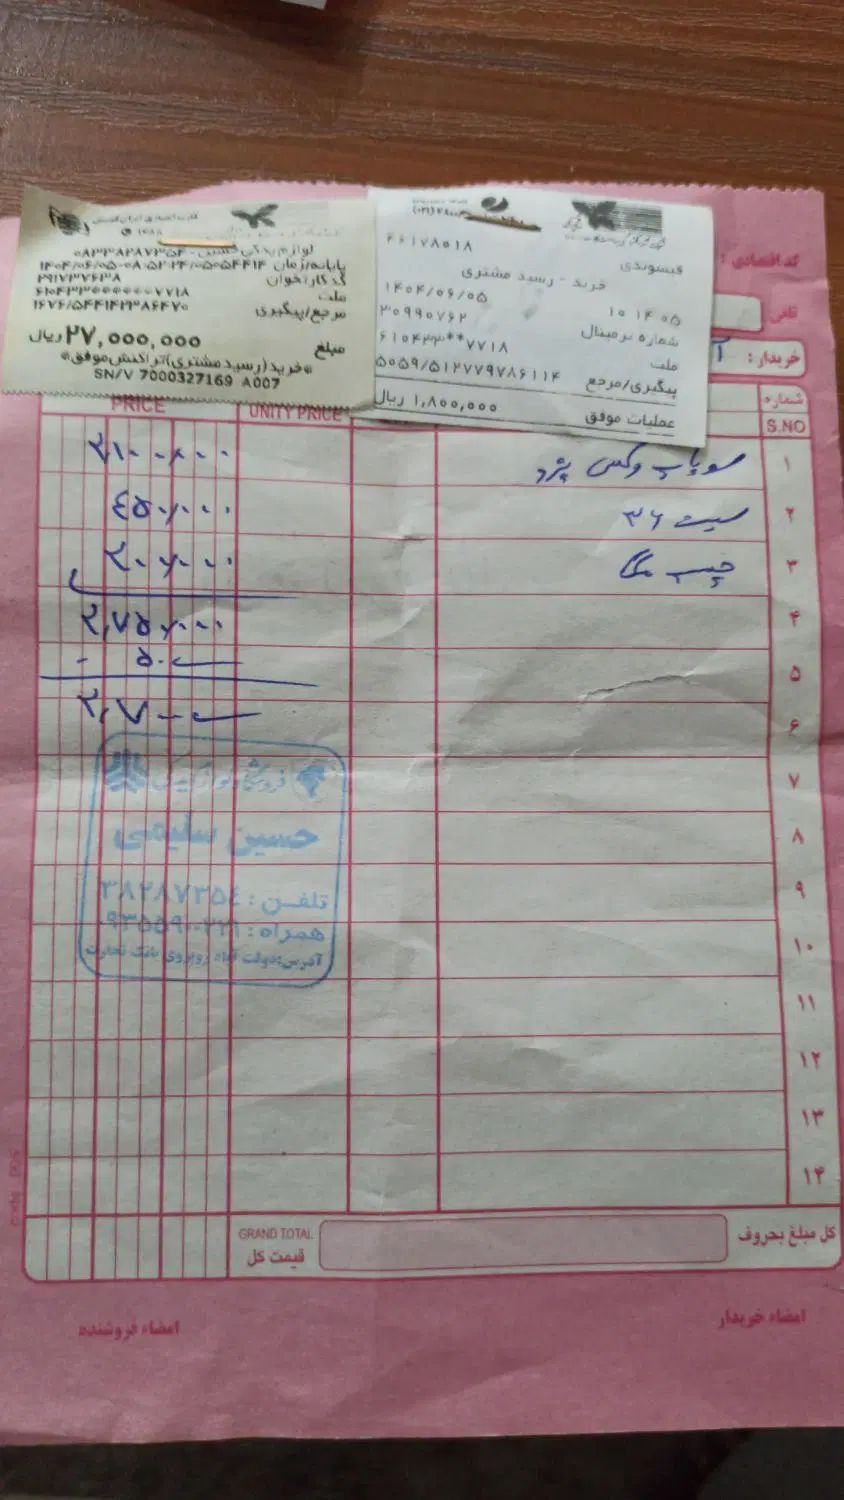 لوازم یدکی حسینی - ۰۸۳۳۸۲۸۷۳۵۴
پایانه/زمان ۱۴۰۴/۰۶/۰۵-۰۸:۵۲:۲۴/۰۵۰۵۴۴۱۴
کد کارتخوان ۲۹۱۷۳۷۶۳۸
ملت ۶۱۰۴۳۳******۷۷۱۸
مرجع/پیگیری ۱۶۷۶/۵۴۴۱۴۲۳۸۶۴۷۰
مبلغ ۲۷,۰۰۰,۰۰۰ ریال
*خرید(رسیدمشتری)تراکنش موفق*
SN/V 7000327169 A007
۶۶۱۷۸۰۱۸
فیسوندی
خرید - رسید مشتری
۱۴۰۴/۰۶/۰۵ ۱۰ ۱۴ ۰۵
شماره ترمینال ۳۰۹۹۰۷۶۲
ملت ۶۱۰۴۳۳**۷۷۱۸
پیگیری/مرجع ۵۰۵۹/۵۱۲۷۷۹۷۸۶۱۱۴
عملیات موفق ۱,۸۰۰,۰۰۰ ریال
کد اقتصادی :
تلفن:
خریدار:
شماره
S.NO
UNITY PRICE
PRICE
۱ سوپاپ وکس پژو ۲۱۰۰,۰۰۰
۲ سیت ۳۶ ۴۵۰,۰۰۰
۳ چسب مگا ۲۰۰,۰۰۰
۴ ۲,۷۵۰,۰۰۰
۵ - ۵۰
۶ ۲,۷۰۰
۷
۸
۹
۱۰
۱۱
۱۲
۱۳
۱۴
فروشگاه لوازم یدکی
حسین سلیمی
تلفن: ۳۸۲۸۷۳۵۴
همراه: ۰۹۳۵۵۹۰۰۲۲۹
آدرس:دولت آباد روبروی بانک تجارت
کل مبلغ بحروف
GRAND TOTAL
قیمت کل
امضاء خریدار
امضاء فروشنده